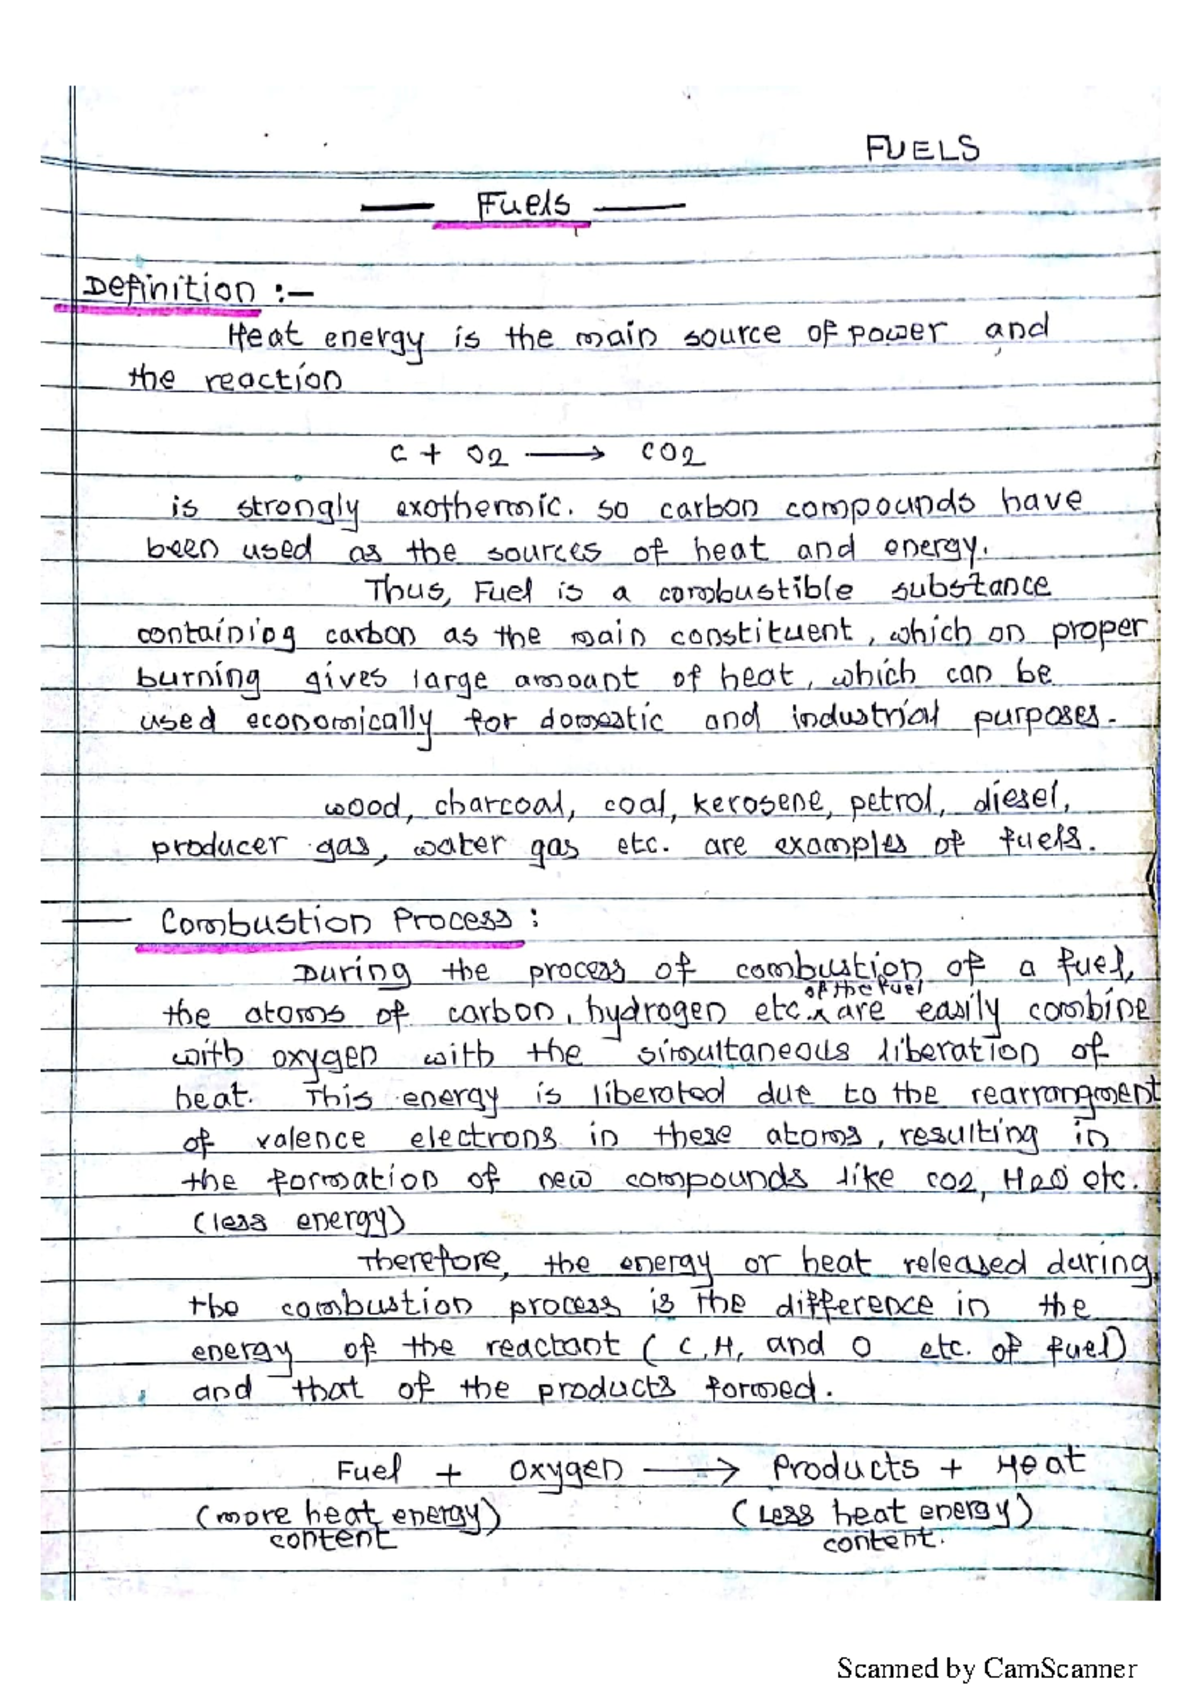 FUELS
Fuels
Definition :-
Heat energy is the main source of power and
the reaction
C + O2 ⟶ CO2
is strongly exothermic. so carbon compounds have
been used as the sources of heat and energy.
Thus, Fuel is a combustible substance
containing carbon as the main constituent, which on proper
burning gives large amount of heat, which can be
used economically for domestic and industrial purposes.
wood, charcoal, coal, kerosene, petrol, diesel,
producer gas, water gas etc. are examples of fuels.
— Combustion Process :
During the process of combustion of a fuel,
of the fuel
the atoms of carbon, hydrogen etc. ^ are easily combine
with oxygen with the simultaneous liberation of
heat. This energy is liberated due to the rearrangment
of valence electrons in these atoms, resulting in
the formation of new compounds like CO2, H2O etc.
(less energy)
Therefore, the energy or heat released during
the combustion process is the difference in the
energy of the reactant ( C, H, and O etc. of fuel)
and that of the products formed.
Fuel + Oxygen ⟶ Products + Heat
(more heat energy) (Less heat energy)
content content.
Scanned by CamScanner